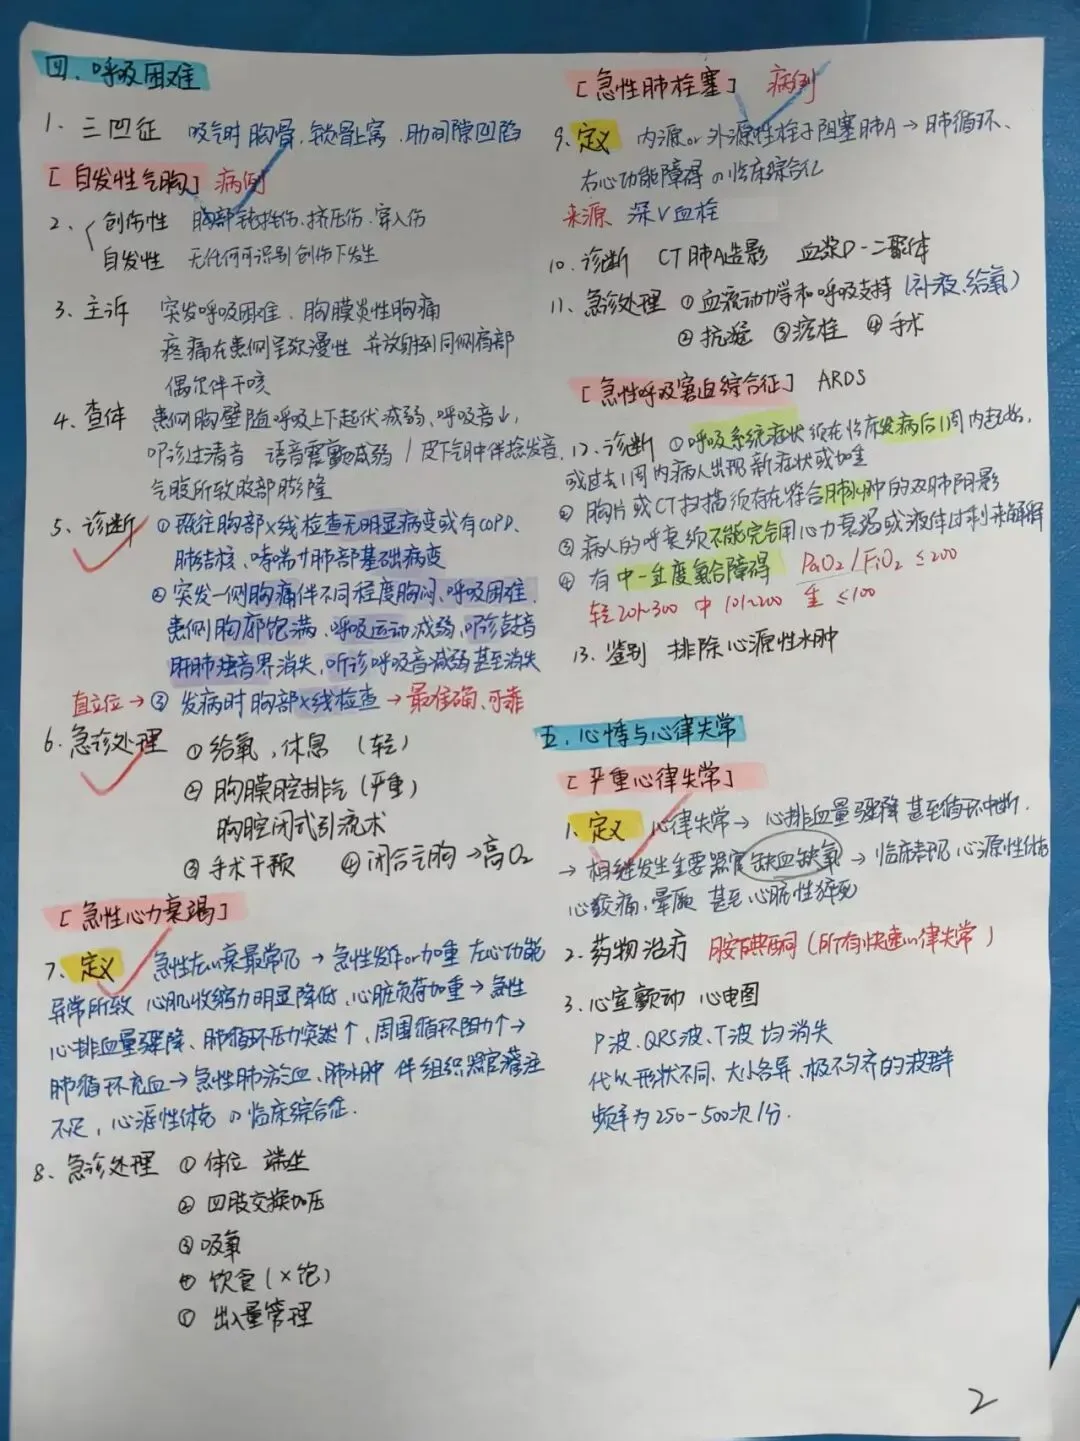 四、呼吸困难
1、三凹征 吸气时胸骨、锁骨上窝、肋间隙凹陷
[自发性气胸] 病例
2、创伤性 胸部钝挫伤、挤压伤、穿入伤
自发性 无任何可识别创伤下发生
3、主诉 突发呼吸困难、胸膜炎性胸痛
疼痛在患侧呈弥漫性 并放射到同侧肩部
偶尔伴干咳
4、查体 患侧胸壁随呼吸上下起伏减弱、呼吸音↓,
叩诊过清音 语音震颤减弱 / 皮下气肿伴捻发音,
气腹所致腹部膨隆
5、诊断 ①既往胸部X线检查无明显病变或有COPD、
肺结核、哮喘等肺部基础病变
②突发一侧胸痛伴不同程度胸闷、呼吸困难、
患侧胸廓饱满、呼吸运动减弱、叩诊鼓音
肝肺浊音界消失,听诊呼吸音减弱甚至消失
直立位→③ 发病时胸部X线检查→最准确、可靠
6、急诊处理 ①给氧,休息 (轻)
②胸膜腔排气 (严重)
胸腔闭式引流术
③手术干预 ④闭合气胸→高O2
[急性心力衰竭]
7、定义 急性左心衰最常见→急性发作or加重左心功能
异常所致 心肌收缩力明显降低、心脏负荷加重→急性
心排血量骤降、肺循环压力突然↑、周围循环阻力↑→
肺循环充血→急性肺淤血、肺水肿 伴组织器官灌注
不足,心源性休克 の临床综合征.
8、急诊处理 ①体位 端坐
②四肢交换加压
③吸氧
④饮食(×饱)
⑤出入量管理
[急性肺栓塞] 病例
9、定义 内源or外源性栓子阻塞肺A→肺循环、
右心功能障碍の临床综合征
来源 深V血栓
10、诊断 CT肺A造影 血浆D-二聚体
11、急诊处理 ①血流动力学和呼吸支持(补液、给氧)
②抗凝 ③溶栓 ④手术
[急性呼吸窘迫综合征] ARDS
12、诊断 ①呼吸系统症状须在临床发病后1周内起始,
或过去1周内病人出现新症状或加重
②胸片或CT扫描须存在符合肺水肿的双肺阴影
③病人的呼衰须不能完全用心力衰竭或液体过剩来解释
④有中-重度氧合障碍 PaO2/FiO2≤200
轻201~300 中101~200 重≤100
13、鉴别 排除心源性水肿
五、心悸与心律失常
[严重心律失常]
1、定义 心律失常→心排血量骤降甚至循环中断.
→相继发生主要器官缺血缺氧→临床表现心源性休克
心绞痛、晕厥 甚至心脏性猝死
2、药物治疗 胺碘酮(所有快速心律失常)
3、心室颤动 心电图
P波、QRS波、T波均消失
代以形状不同、大小各异、极不匀齐的波群
频率为250-500次/分.
2